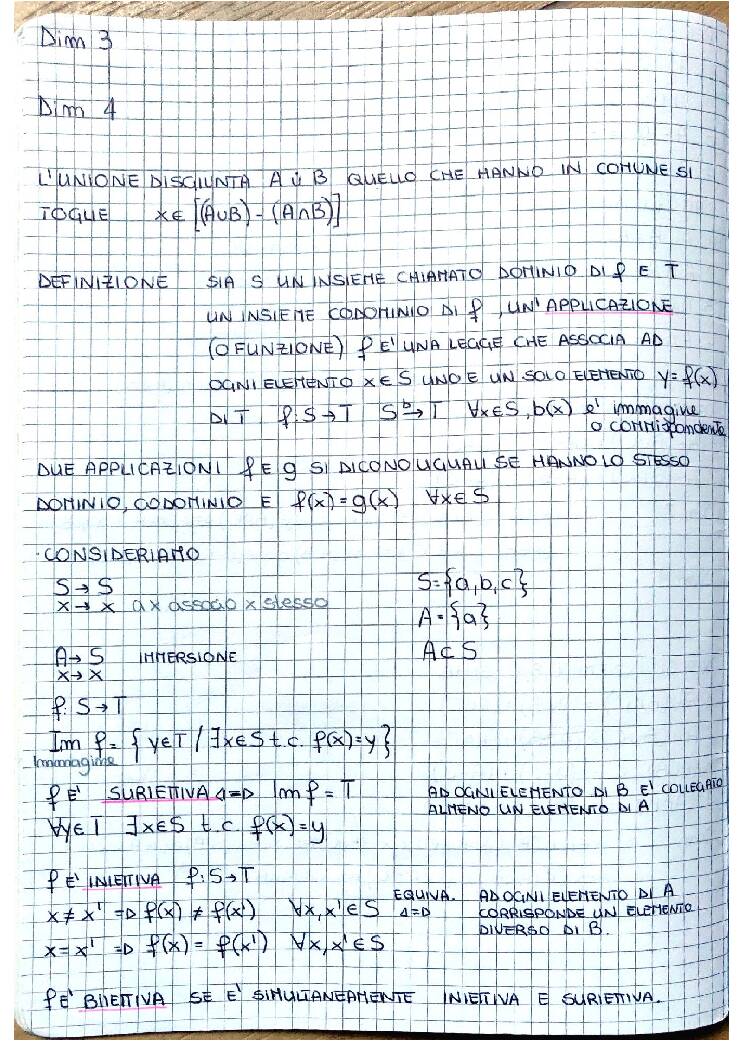 Dim 3
Dim 4
L'UNIONE DISGIUNTA A ∪̇ B QUELLO CHE HANNO IN COMUNE SI
TOGLIE x∈ [(A∪B) - (A∩B)]
DEFINIZIONE SIA S UN INSIEME CHIAMATO DOMINIO DI f E T
UN INSIEME CODOMINIO DI f, UN'APPLICAZIONE
(O FUNZIONE) f E' UNA LEGGE CHE ASSOCIA AD
OGNI ELEMENTO x∈S UNO E UN SOLO ELEMENTO y=f(x)
DI T f:S→T S b→ T ∀x∈S, b(x) e' immagine
o corrispondente
DUE APPLICAZIONI f E g SI DICONO UGUALI SE HANNO LO STESSO
DOMINIO, CODOMINIO E f(x)=g(x) ∀x∈S
·CONSIDERIAMO
S→S S={a,b,c}
x→x a x associo x stesso
A={a}
A→S IMMERSIONE A⊂S
x→x
f:S→T
Im f= { y∈T / ∃x∈S t.c. f(x)=y}
Immagine
f E' SURIETTIVA ⇔ Im f = T AD OGNI ELEMENTO DI B E' COLLEGATO
∀y∈T ∃x∈S t.c. f(x)=y ALMENO UN ELEMENTO DI A
f E' INIETTIVA f:S→T
x≠x' ⇒ f(x) ≠ f(x') ∀x,x'∈S EQUIVA. ⇔ AD OGNI ELEMENTO DI A
CORRISPONDE UN ELEMENTO
DIVERSO DI B.
x=x' ⇒ f(x) = f(x') ∀x,x'∈S
f E' BIIETTIVA SE E' SIMULTANEAMENTE INIETTIVA E SURIETTIVA.